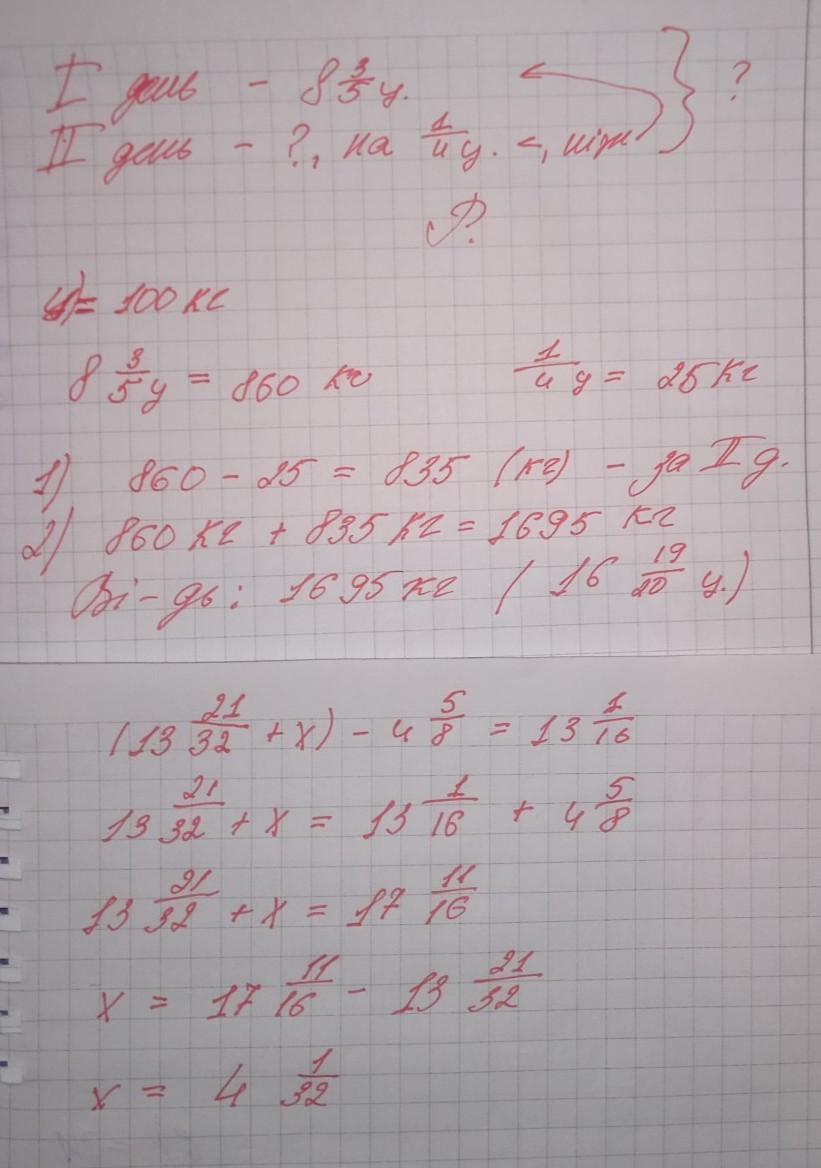 I день - 8 3/5 ц.
II день - ?, на 1/4 ц. <, ніж } ?
Р.
ц = 100 кг
8 3/5 ц = 860 кг 1/4 ц = 25 кг
1) 860 - 25 = 835 (кг) - за II д.
2) 860 кг + 835 кг = 1695 кг
Ві-дь: 1695 кг (16 19/20 ц.)
(13 21/32 + x) - 4 5/8 = 13 1/16
13 21/32 + x = 13 1/16 + 4 5/8
13 21/32 + x = 17 11/16
x = 17 11/16 - 13 21/32
x = 4 1/32